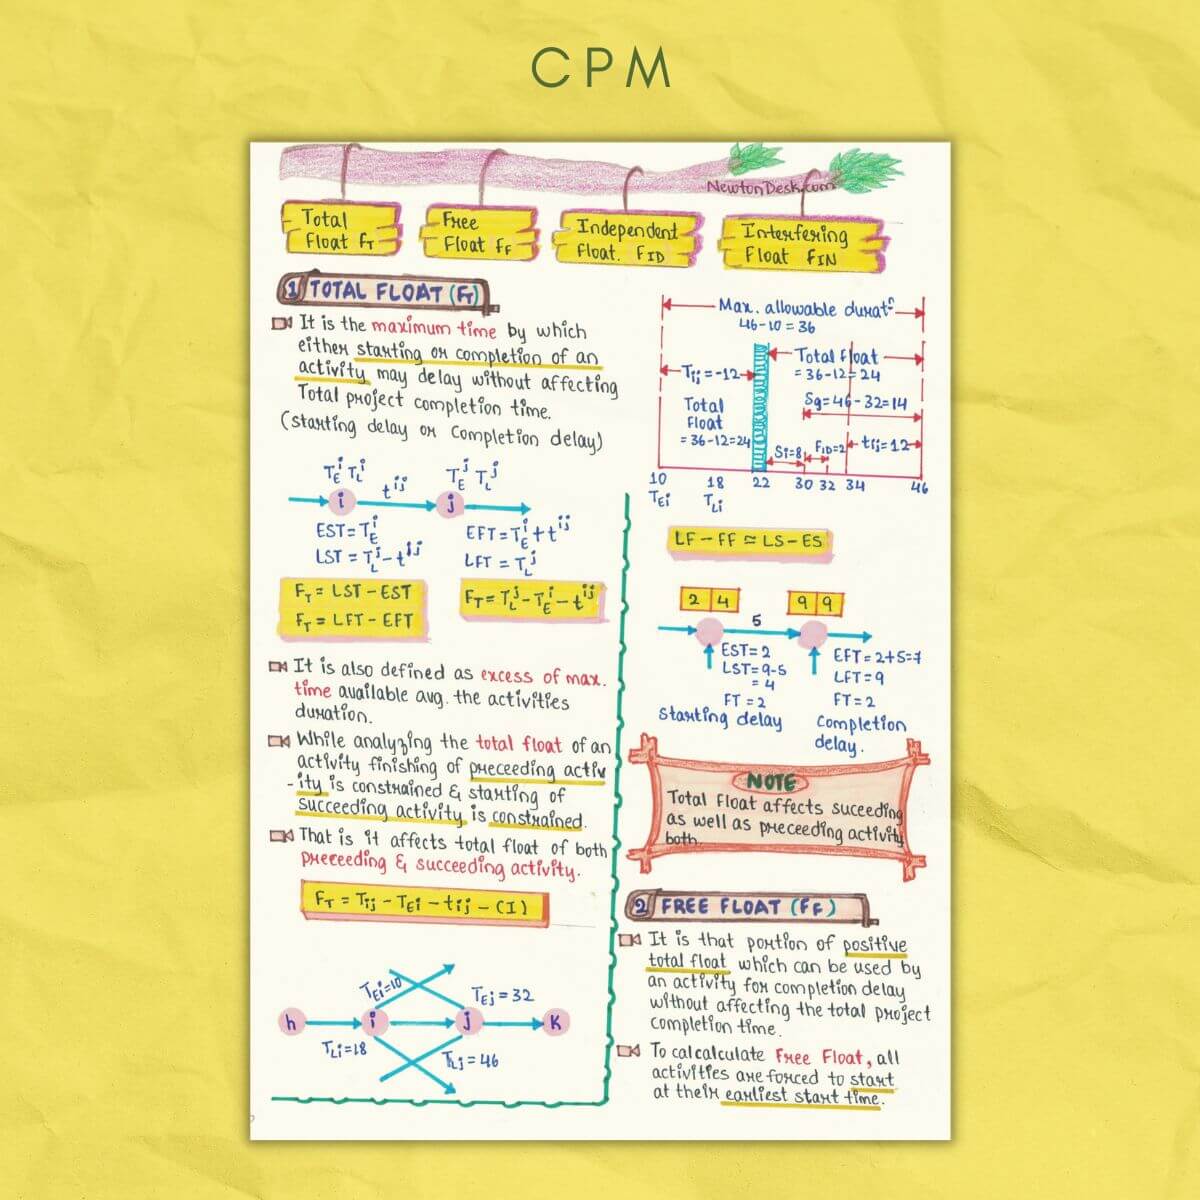 CPM
NewtonDesk.com
Total
Float FT
Free
Float FF
Independent
Float. FID
Interfering
Float FIN
1 TOTAL FLOAT (FT)
It is the maximum time by which
either starting or completion of an
activity may delay without affecting
Total project completion time.
(starting delay or completion delay)
TEi TLi
tij
TEj TLj
i
j
EST=TEi
LST=TLj-tij
EFT=TEi+tij
LFT=TLj
FT = LST-EST
FT = LFT-EFT
FT=TLj-TEi-tij
It is also defined as excess of max.
time available avg. the activities
duration.
While analyzing the total float of an
activity finishing of preceeding activ
-ity is constrained & starting of
succeeding activity is constrained.
That is it affects total float of both
preceeding & succeeding activity.
FT = Tij-TEi-tij-(I)
TEi=10
TEj=32
h
i
j
K
TLi=18
TLj=46
Max. allowable durat
46-10=36
Total float
=36-12=24
Tij=-12
Sg=46-32=14
Total
Float
=36-12=24
Si=8
FID=2
tij=12
10
18
22
30
32
34
46
TEi
TLi
LF-FF≃LS-ES
2 4
9 9
5
EST=2
LST=9-5
=4
FT=2
Starting delay
EFT=2+5=7
LFT=9
FT=2
Completion
delay.
NOTE
Total Float affects suceeding
as well as preceeding activity
both.
2 FREE FLOAT (FF)
It is that portion of positive
total float which can be used by
an activity for completion delay
without affecting the total project
completion time.
To calcalculate Free Float, all
activities are forced to start
at their earliest start time.